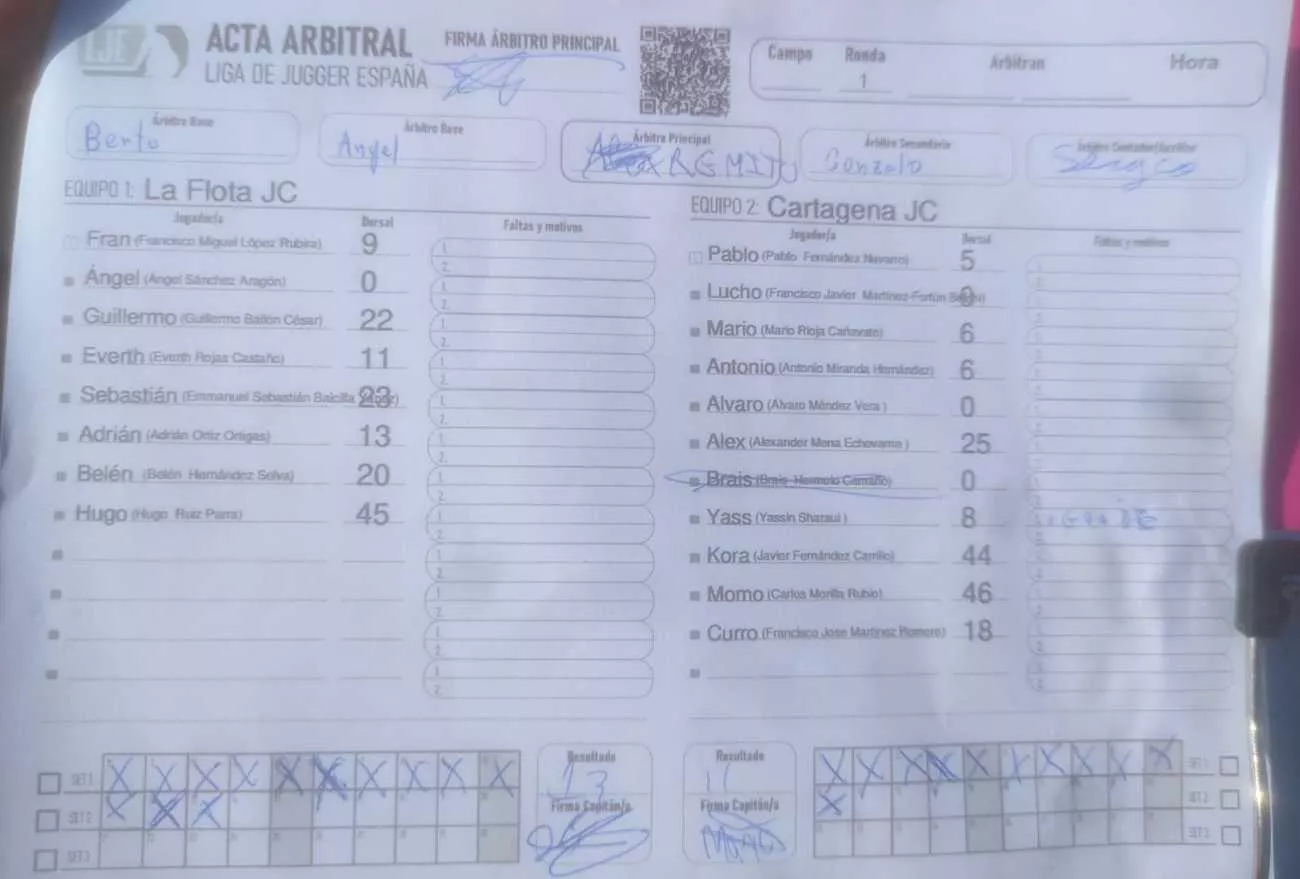 LJE ACTA ARBITRAL FIRMA ÁRBITRO PRINCIPAL Campo Ronda Arbitran Hora
LIGA DE JUGGER ESPAÑA 1
Árbitro Base Árbitro Base Árbitro Principal Árbitro Secundario Árbitro Contador/Auxiliar
Berto Angel REMITO Gonzalo Sergio
EQUIPO 1: La Flota JC
Jugador/a Dorsal Faltas y motivos
Fran (Francisco Miguel López Rubira) 9
Ángel (Angel Sánchez Aragón) 0
Guillermo (Guillermo Bailón César) 22
Everth (Everth Rojas Castaño) 11
Sebastián (Emmanuel Sebastián Balcilla 23
Adrián (Adrián Ortiz Ortigas) 13
Belén (Belén Hernández Selva) 20
Hugo (Hugo Ruiz Parra) 45
EQUIPO 2: Cartagena JC
Jugador/a Dorsal Faltas y motivos
Pablo (Pablo Fernández Navarro) 5
Lucho (Francisco Javier Martínez-Fortún 0
Mario (Mario Rioja Cañavate) 6
Antonio (Antonio Miranda Hernández) 6
Alvaro (Alvaro Méndez Vera ) 0
Alex (Alexander Mena Echevarria ) 25
Brais (Brais Hermelo Carraño) 0
Yass (Yassin Sharaui ) 8
Kora (Javier Fernández Carrillo) 44
Momo (Carlos Morilla Rubio) 46
Curro (Francisco Jose Martínez Romero) 18
SET 1
SET 2
SET 3
Resultado
13
Firma Capitán/a
Resultado
11
Firma Capitán/a
SET 1
SET 2
SET 3